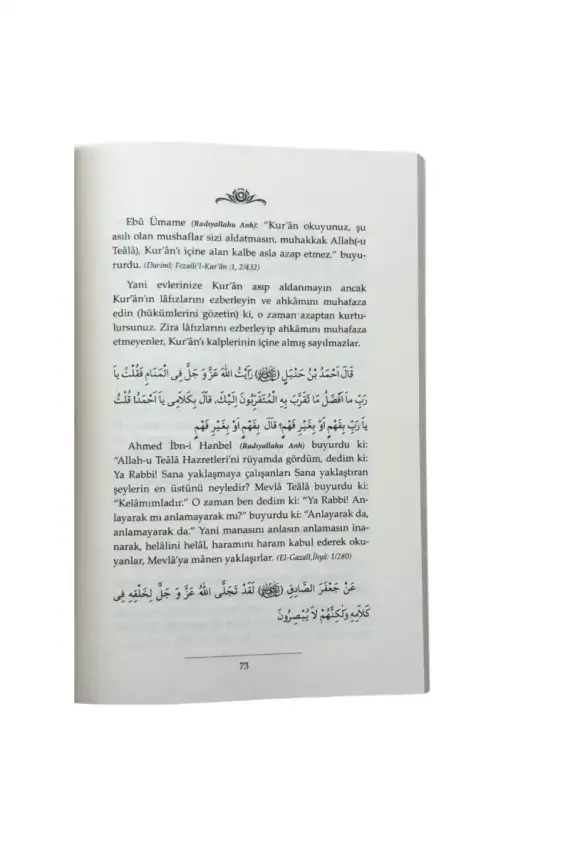 Ebû Ümame (Radıyallahu Anh): "Kur'ân okuyunuz, şu
asılı olan mushaflar sizi aldatmasın, muhakkak Allah(-u
Teâlâ), Kur'ân'ı içine alan kalbe asla azap etmez." buyu-
rurdu. (Darimî; Fezaili'l-Kur'ân :1, 2/432)
Yani evlerinize Kur'ân asıp aldanmayın ancak
Kur'ân'ın lâfızlarını ezberleyin ve ahkâmını muhafaza
edin (hükümlerini gözetin) ki, o zaman azaptan kurtu-
lursunuz. Zira lâfızlarını ezberleyip ahkâmını muhafaza
etmeyenler, Kur'ân'ı kalplerinin içine almış sayılmazlar.
قَالَ اَحْمَدُ بْنُ حَنْبَلٍ (ﷺ) رَاَيْتُ اللهَ عَزَّ وَ جَلَّ فِى الْمَنَامِ فَقُلْتُ يَا
رَبِّ مَا اَفْضَلُ مَا تَقَرَّبَ بِهِ الْمُتَقَرِّبُونَ اِلَيْكَ. قَالَ بِكَلَامِى يَا اَحْمَدُ! قُلْتُ
يَا رَبِّ بِفَهْمٍ اَوْ بِغَيْرِ فَهْمٍ؟ قَالَ بِفَهْمٍ اَوْ بِغَيْرِ فَهْمٍ
Ahmed İbn-i Hanbel (Radıyallahu Anh) buyurdu ki:
"Allah-u Teâlâ Hazretleri'ni rüyamda gördüm, dedim ki:
Ya Rabbi! Sana yaklaşmaya çalışanları Sana yaklaştıran
şeylerin en üstünü neyledir? Mevlâ Teâlâ buyurdu ki:
"Kelâmımladır." O zaman ben dedim ki: "Ya Rabbi! An-
layarak mı anlamayarak mı?" buyurdu ki: "Anlayarak da,
anlamayarak da." Yani manasını anlasın anlamasın ina-
narak, helâlini helâl, haramını haram kabul ederek oku-
yanlar, Mevlâ'ya mânen yaklaşırlar. (El-Gazalî,İhyâ: 1/280)
عَنْ جَعْفَرَ الصَّادِقِ () لَقَدْ تَجَلَّى اللهُ عَزَّ وَ جَلَّ لِخَلْقِهِ فِى
كَلَامِهِ وَلٰكِنَّهُمْ لَا يُبْصِرُونَ
73